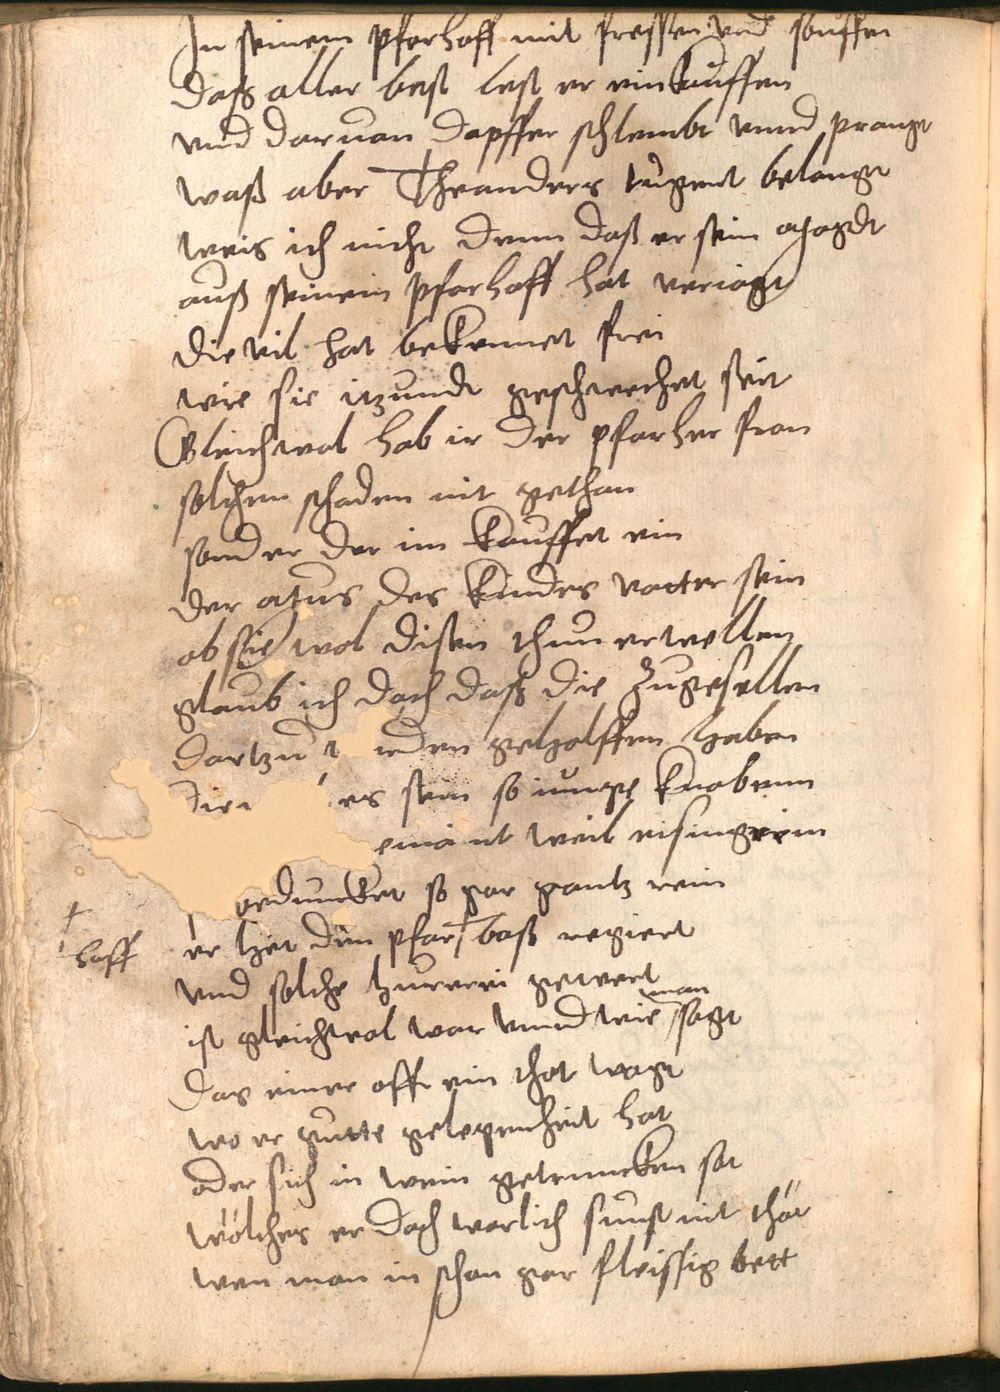 In seinem pfarhoff mit fressen und souffen
daß aller best lest er einkauffen
und daruon dapffer schlembt unnd prangt
waß aber Theanders tugent belangt
weis ich nicht denn daß er sein magdt
auß seinem pfarhoff hat veriagt
die vil hat bekennet frei
wie sie itzundt geschwechet sei
Gleichwol hab ir der pfarher fron
solchen schaden nit gethan
sonder der im kauffet ein
der mus des kindes vatter sein
ob sie wol disen thun erwellen
glaub ich doch daß die zugesellen
dartzu geholffen haben
die es sein so iunge knabenn
weil
gedunket so gar gantz rein
er het den pfar† baß regiert
† hoff
und solche hurerei gewert
ist gleichwol war unnd wie man sagt
das einer offt ein that wagt
wo er gutte gelegenheit hat
oder sich in wein getruncken sat
wölches er doch warlich sunst nit thöt
wen man in schon gar fleissig bett